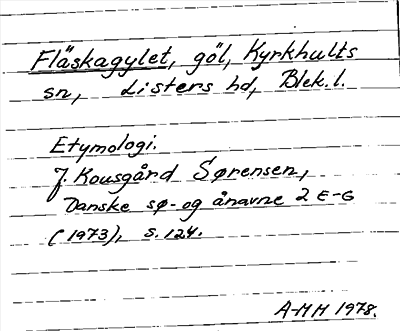 Fläskagylet, göl, Kyrkhults
sn, Listers hd, Blek. l.
Etymologi.
J. Kousgård Sørensen,
Danske sø- og ånavne 2 E-G
(1973), s. 124.
A-MH 1978.